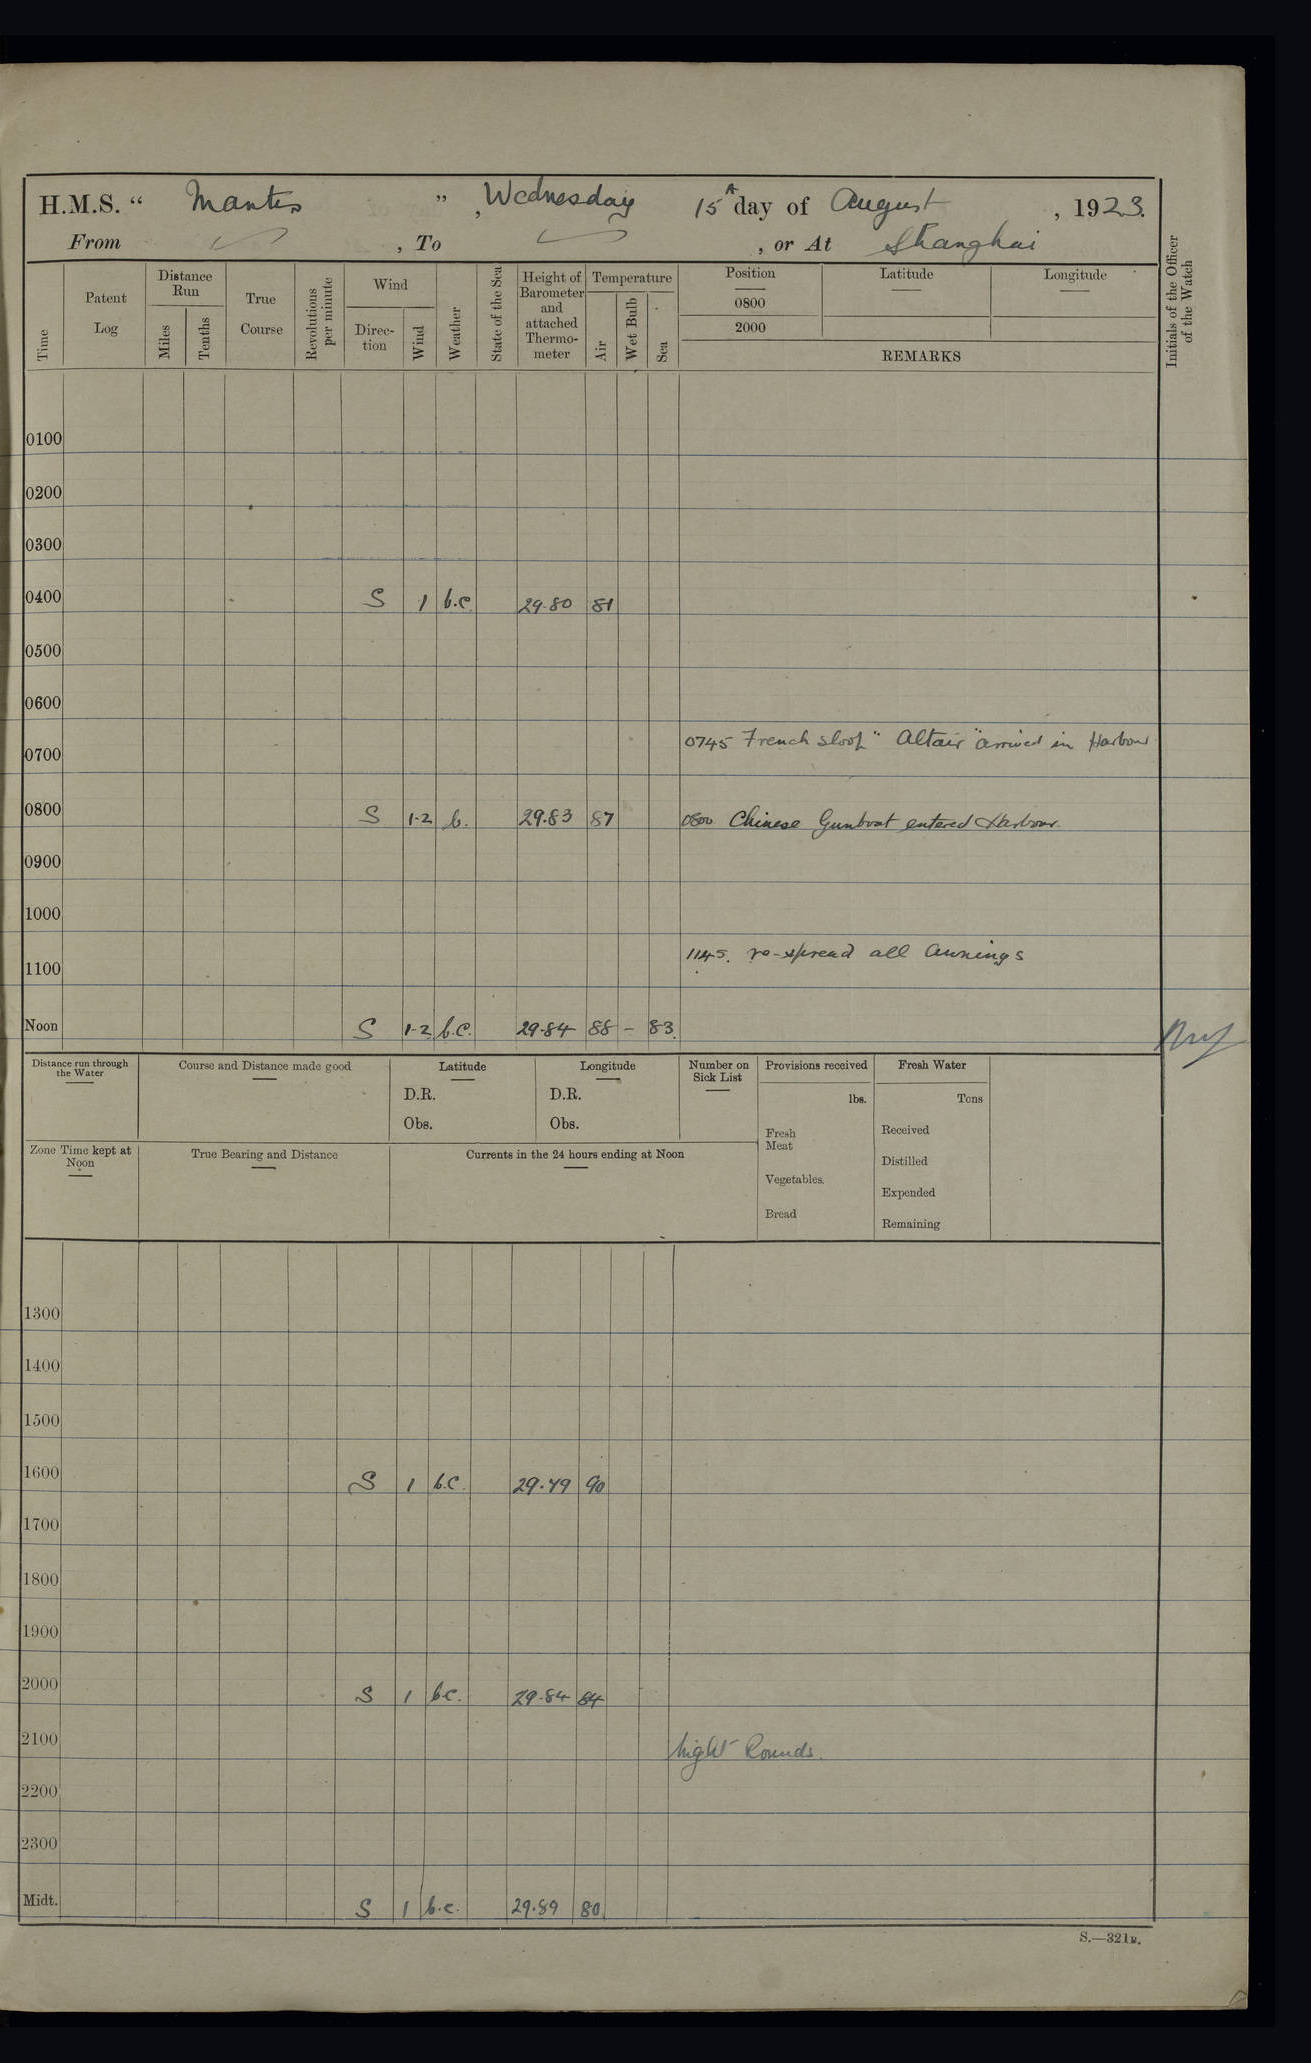 H.M.S. “ Mantis ”, Wednesday 15th day of August, 1923.
From , To , or At Shanghai
Time
Patent Log
Distance Run
Miles
Tenths
True Course
Revolutions per minute
Wind
Direc- tion
Wind
Weather
State of the Sea
Height of Barometer and attached Thermo- meter
Temperature
Air
Wet Bulb
Sea
Position
0800
2000
Latitude
Longitude
REMARKS
Initials of the Officer of the Watch
0100
0200
0300
0400 S 1 b.c. 29.80 81
0500
0600
0745 French sloop "Altair" arrived in Harbour
0700
0800 S 1-2 b. 29.83 87 0800 Chinese Gunboat entered Harbour.
0900
1000
1145. re-spread all awnings
1100
Noon S 1-2 b.c. 29.84 88 – 83.
Distance run through the Water
Course and Distance made good
Latitude
D.R.
Obs.
Longitude
D.R.
Obs.
Number on Sick List
Provisions received
lbs.
Fresh Meat
Vegetables.
Bread
Fresh Water
Tons
Received
Distilled
Expended
Remaining
Zone Time kept at Noon
True Bearing and Distance
Currents in the 24 hours ending at Noon
1300
1400
1500
1600 S 1 b.c. 29.79 90
1700
1800
1900
2000 S 1 b.c. 29.84 84
2100 Night Rounds.
2200
2300
Midt. S 1 b.c. 29.89 80
S.—321B.